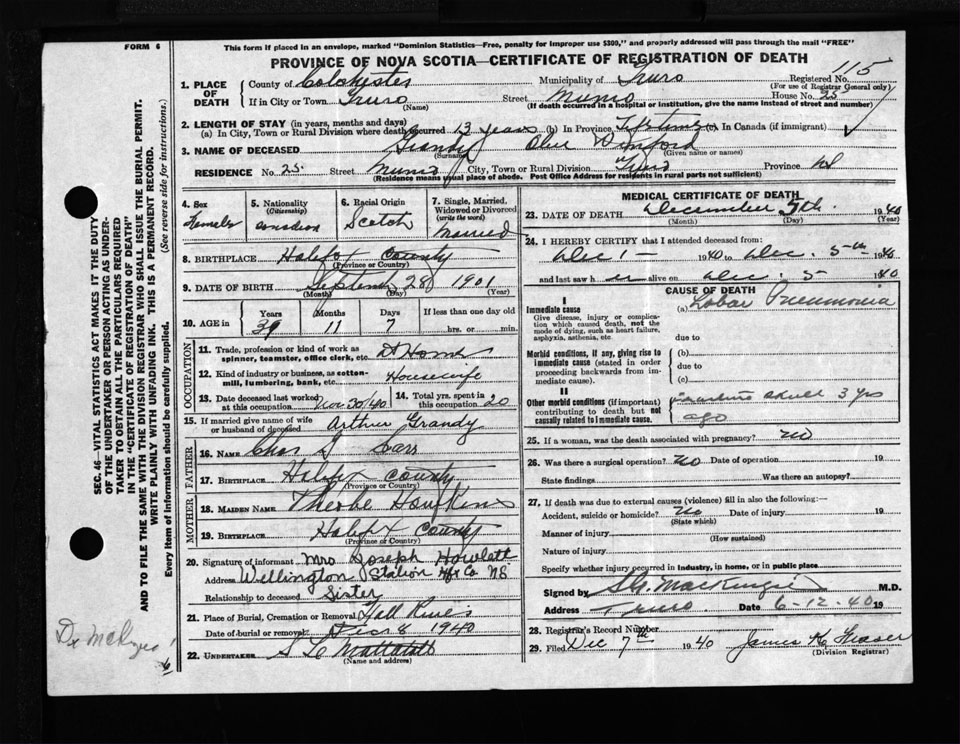 FORM 6
This form if placed in an envelope, marked "Dominion Statistics—Free, penalty for improper use $300," and properly addressed will pass through the mail "FREE"
PROVINCE OF NOVA SCOTIA—CERTIFICATE OF REGISTRATION OF DEATH
Registered No. 115
(For use of Registrar General only)
1. PLACE OF DEATH County of Colchester Municipality of Truro
If in City or Town Truro (Name) Street Munro House No. 25
(If death occurred in a hospital or institution, give the name instead of street and number)
2. LENGTH OF STAY (in years, months and days)
(a) In City, Town or Rural Division where death occurred 13 years (b) In Province Life time (c) In Canada (if immigrant)
3. NAME OF DECEASED Grandy (Surname) Olive (Given name or names)
RESIDENCE No. 25 Street Munro City, Town or Rural Division Truro Province
(Residence means usual place of abode. Post Office Address for residents in rural parts not sufficient)
4. Sex
Female
5. Nationality (Citizenship)
Canadian
6. Racial Origin
Scotch
7. Single, Married, Widowed or Divorced (write the word)
Married
8. BIRTHPLACE Halifax County
(Province or Country)
9. DATE OF BIRTH September 28 1901
(Month) (Day) (Year)
10. AGE in Years 39 Months 11 Days 7 If less than one day old
hrs. or min.
OCCUPATION
11. Trade, profession or kind of work as spinner, teamster, office clerk, etc. At Home
12. Kind of industry or business, as cotton-mill, lumbering, bank, etc. Housewife
13. Date deceased last worked at this occupation Nov 30/40 14. Total yrs. spent in this occupation 20
15. If married give name of wife or husband of deceased Arthur Grandy
FATHER
16. NAME Chas G Carr
17. BIRTHPLACE Halifax County
(Province or Country)
MOTHER
18. MAIDEN NAME
19. BIRTHPLACE Halifax County
(Province or Country)
20. Signature of informant Mrs Joseph Howlett
Address Wellington Station Hfx Co NS
Relationship to deceased Sister
21. Place of Burial, Cremation or Removal
Date of burial or removal Dec 8 1940
22. UNDERTAKER
(Name and address)
MEDICAL CERTIFICATE OF DEATH
23. DATE OF DEATH December 5th. 1940
(Month) (Day) (Year)
24. I HEREBY CERTIFY that I attended deceased from:
Dec 1 – 1940 to Dec. 5–th 1940
and last saw her alive on Dec. 5 1940
CAUSE OF DEATH
I
Immediate cause (a) Lobar Pneumonia
Give disease, injury or complication which caused death, not the mode of dying, such as heart failure, asphyxia, asthenia, etc.
due to
Morbid conditions, if any, giving rise to immediate cause (stated in order proceeding backwards from immediate cause).
(b)
due to
(c)
II
Other morbid conditions (if important) contributing to death but not causally related to immediate cause.
skull 3 yrs
ago
25. If a woman, was the death associated with pregnancy? No
26. Was there a surgical operation? No Date of operation 19
State findings Was there an autopsy?
27. If death was due to external causes (violence) fill in also the following:—
Accident, suicide or homicide? No Date of injury 19
(State which)
Manner of injury
(How sustained)
Nature of injury
Specify whether injury occurred in industry, in home, or in public place
Signed by S.G. MacKenzie M.D.
Address Truro. Date 6-12-40 19
28. Registrar's Record Number
29. Filed Dec 7th 1940 James K Fraser
(Division Registrar)
SEC. 46—VITAL STATISTICS ACT MAKES IT THE DUTY
OF THE UNDERTAKER OR PERSON ACTING AS UNDER-
TAKER TO OBTAIN ALL THE PARTICULARS REQUIRED
IN THE "CERTIFICATE OF REGISTRATION OF DEATH"
AND TO FILE THE SAME WITH THE DIVISION REGISTRAR WHO SHALL ISSUE THE BURIAL PERMIT.
WRITE PLAINLY WITH UNFADING INK. THIS IS A PERMANENT RECORD.
Every item of Information should be carefully supplied. (See reverse side for instructions.)